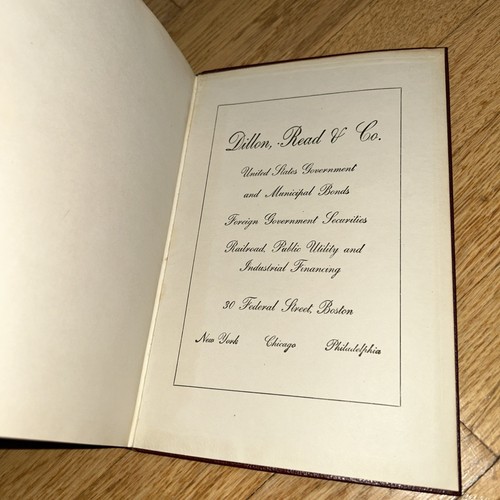 Dillon, Read & Co.
United States Government
and Municipal Bonds
Foreign Government Securities
Railroad, Public Utility and
Industrial Financing
30 Federal Street, Boston
New York Chicago Philadelphia